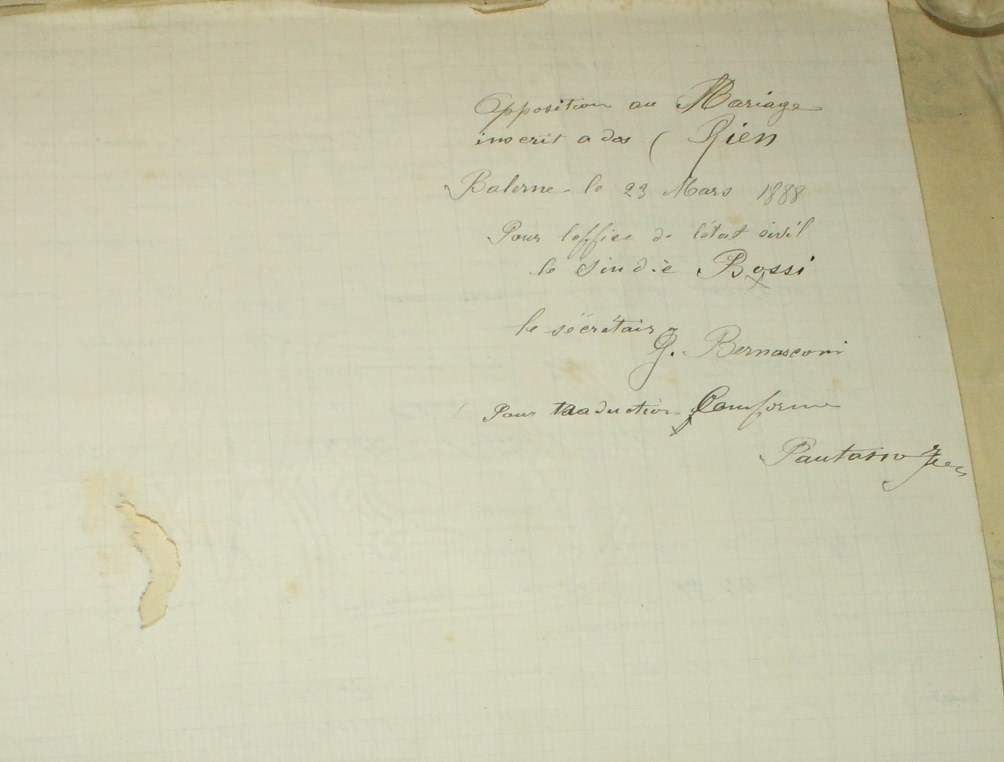 Opposition au Mariage
inscrit a dos ( Rien
Balerne le 23 Mars 1888
Pour loffice de létat sivil
le Sindic Bossi
le sécrétaire
G. Bernasconi
Pour traduction Conforme
Pautasso